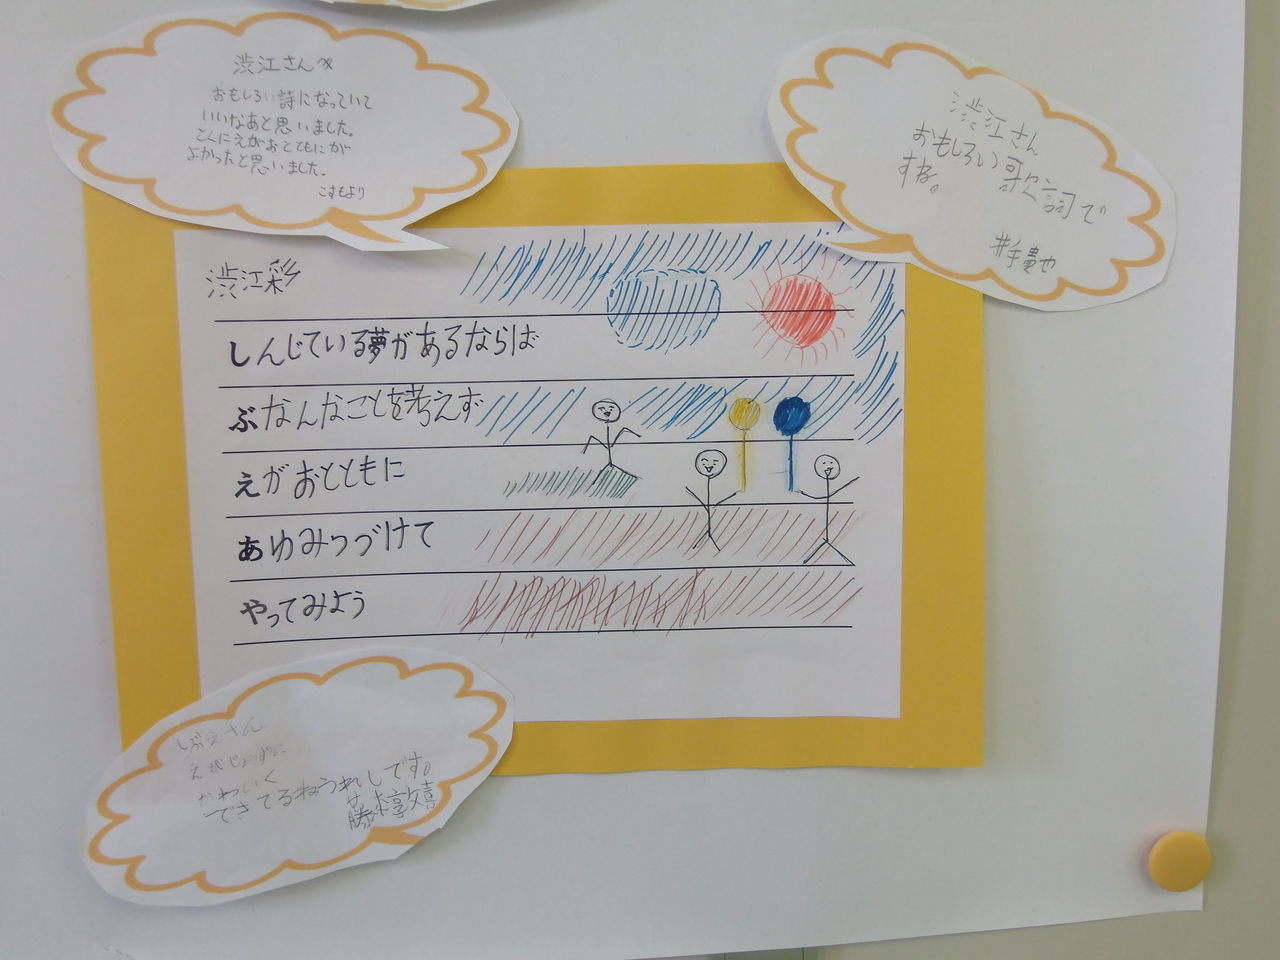 渋江さんへ
おもしろい詩になっていて
いいなあと思いました。
とくにえがおとともにが
よかったと思いました。
こすもより
渋江さん
おもしろい歌詞で
すね。
井手貴也
渋江彩
しんじている夢があるならば
ぶなんなことを考えず
えがおとともに
あゆみつづけて
やってみよう
しぶえさん
えがじょうずに
かわいく
できてるねうれしです。
藤木